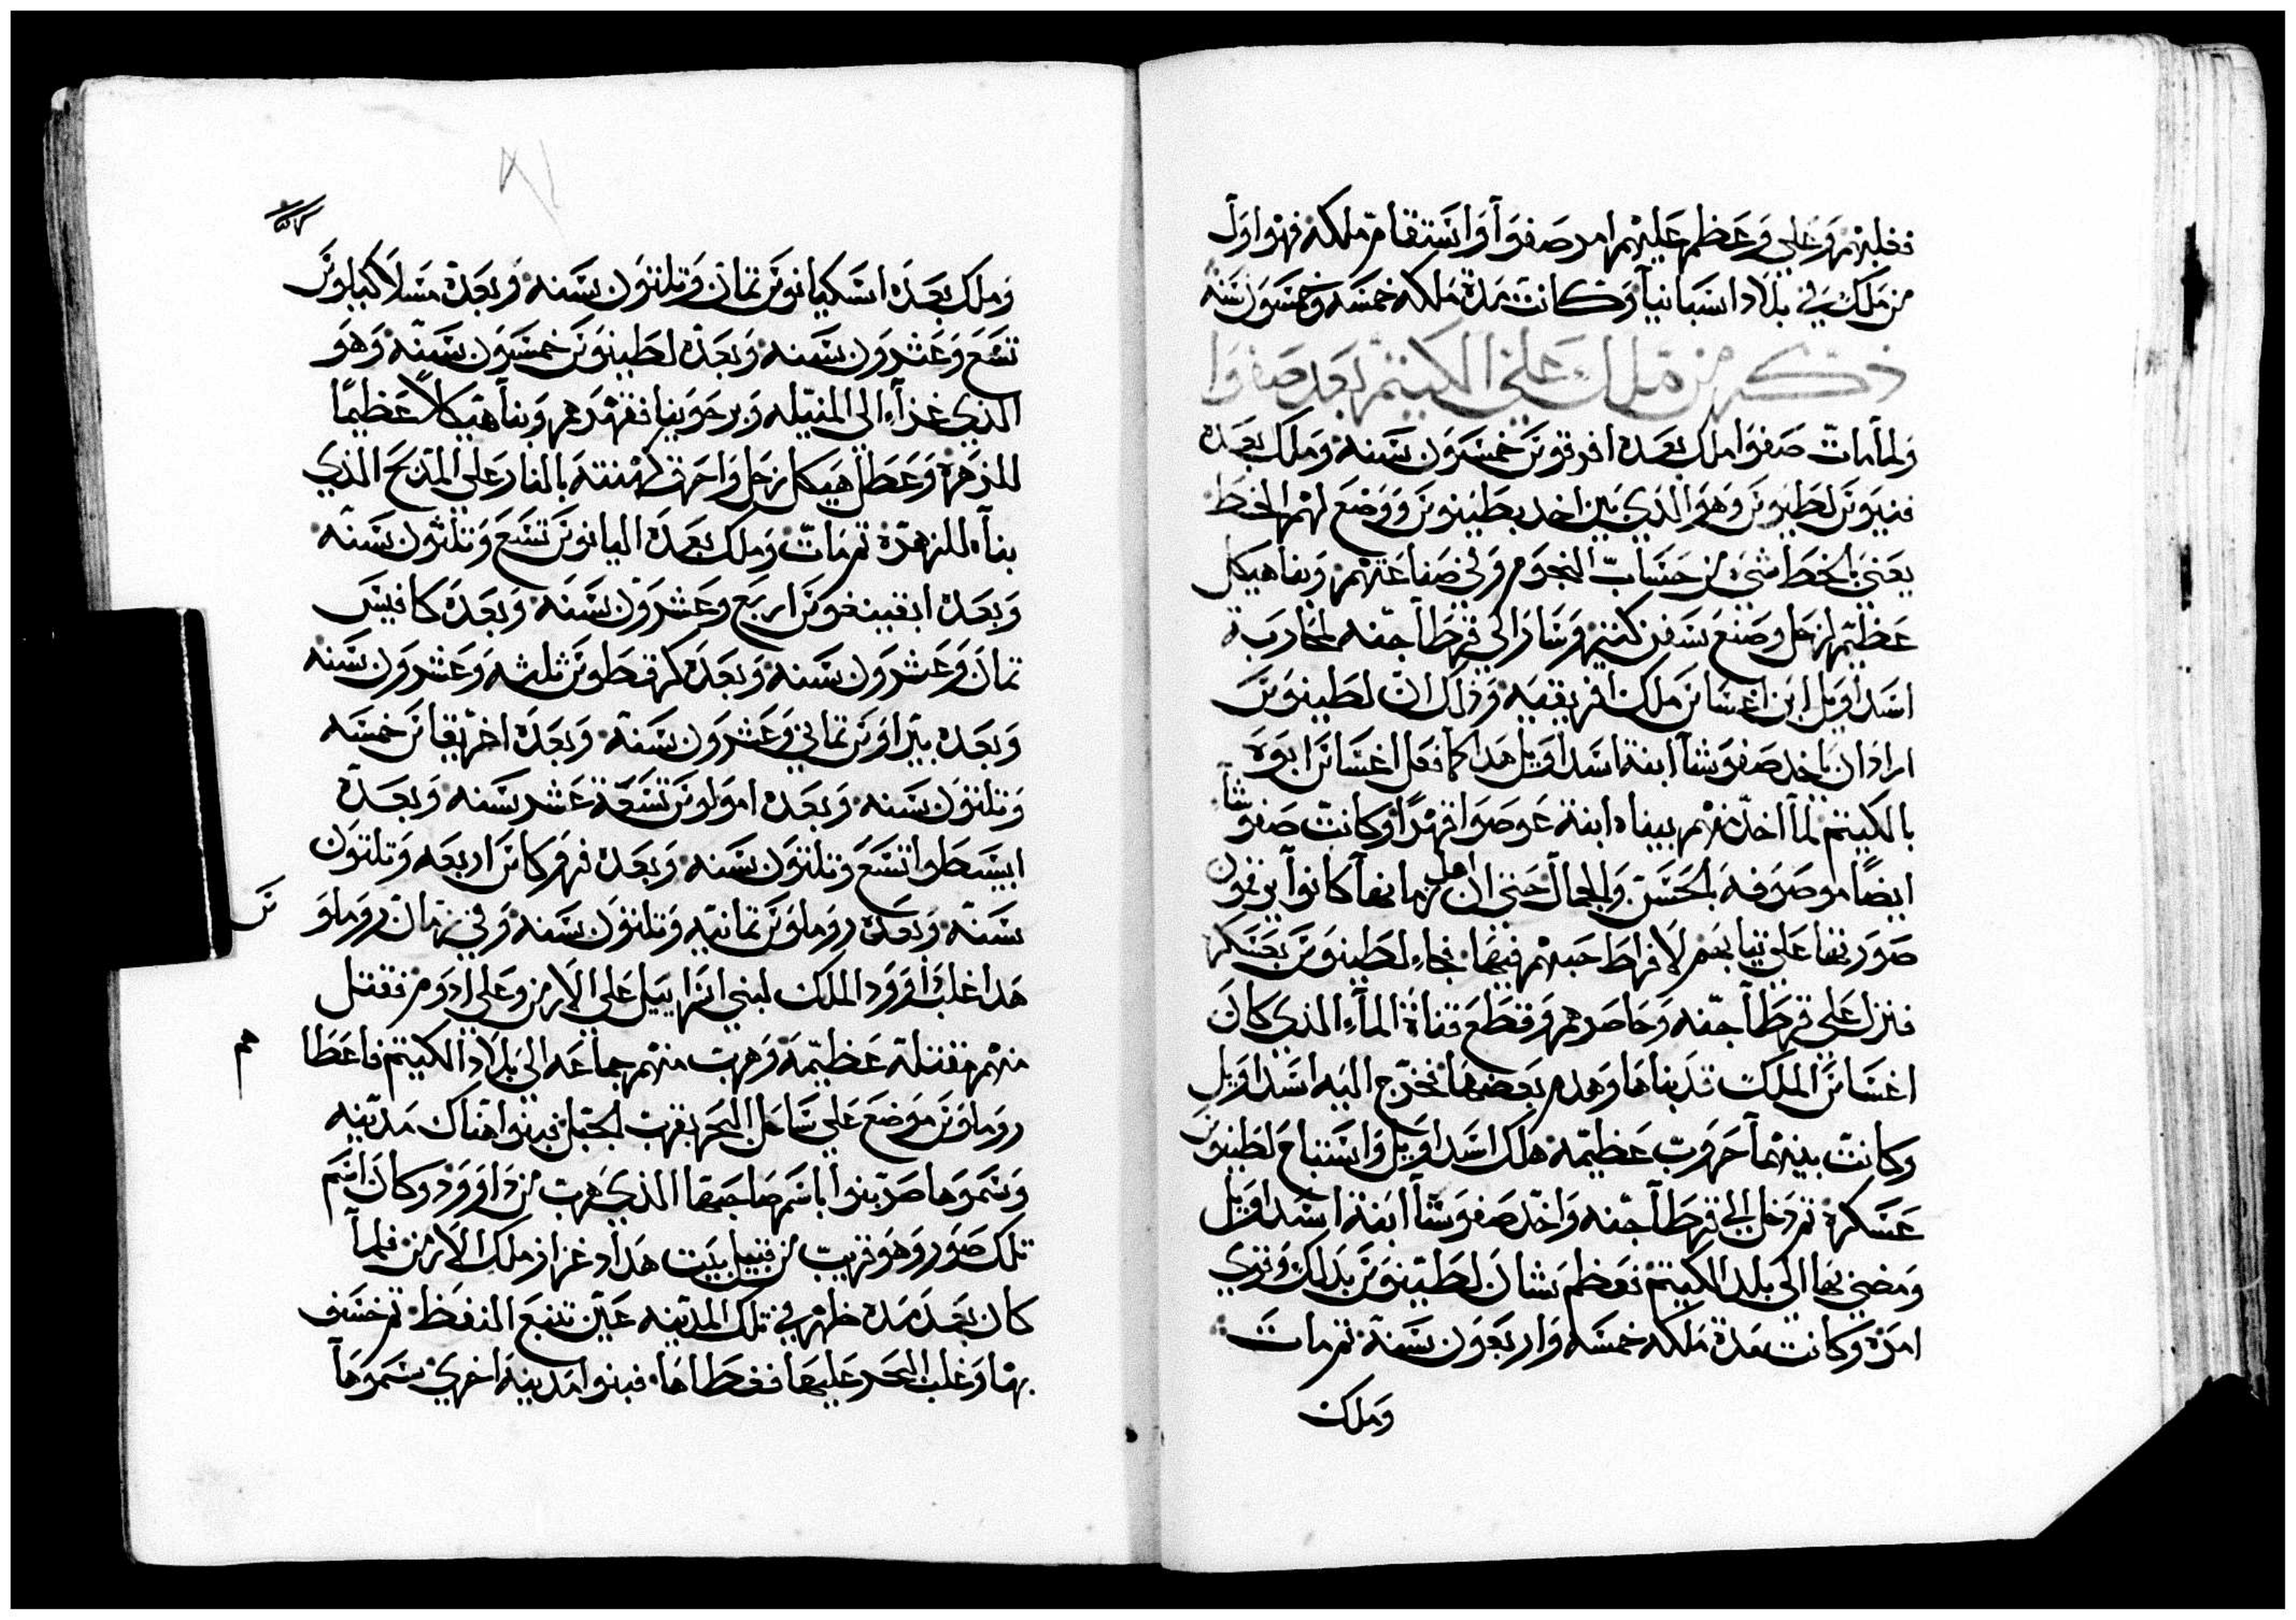 فغلبهم وعلي وعظم عليهم امر صفوا واستقام ملكه فهوا اول
من ملك في بلاد اسبانيا وكانت مدة ملكه خمسه وخمسون سنه
ذكر من ملك علي الكيتم بعد صفوا
ولما مات صفوا ملك بعده افرقونس خمسون سنه وملك بعده
لطينوس وهو الذي بين اخد بطينوس ووضع لهم الخط
يعني الخط شي من حساب النجوم وفي صناعتهم وبنا هيكل
عظيم لزحل وصنع سفن كتير وسار الى قرطاجنه لمحاربة
اسداويل ابن اغسانس ملك افريقيه وذلك ان لطينوس
اراد ان ياخد صفوشا ابنة اسداويل هدا كما فعل اغسانس ابوه
بالكيتم لما اخد منهم يبناه ابنة عوصوا قهرًا وكانت صفوشا
ايضًا موصوفه بالحسن والجمال حتى ان اهل زمانها كانوا يرقمون
صورتها على تيابهم لافراط حبهم فيها فجاء لطينوس بعسكره
فنزل على قرطاجنه وحاصرهم وقطع قناة الماء الذي كان
اغسانس الملك قد بناها وهدم بعضها فخرج اليه اسداويل
وكانت بينهما حروب عظيمه هلك اسداويل واستباح لطينوس
عسكره ثم دخل الى قرطاجنه واخد صفوشا ابنة اسداويل
ومضي بها الى بلد الكيتم فعظم شان لطينوس بدلك وقوي
امره وكانت مدة ملكه خمسه واربعون سنة ثم مات
وملك
وملك بعده اشكيانوس تمان وتلتون سنه وبعده
تسع وعشرون سنه وبعده لطينوس خمسون سنه وهو
الذي غزا الى وبرجونيا فقهرهم وبنا هيكلا عظيمًا
للزهرة وعطل هيكل زحل واحرق كهنته بالنار على المدبح الذي
بناه للزهرة ثم مات وملك بعده اليانوس تسع وتلثون سنه
وبعده اربع وعشرون سنه وبعده كافيس
تمان وعشرون سنه وبعده كرقطوس ثلثه وعشرون سنه
وبعده تماني وعشرون سنة وبعده اخريقانس خمسه
وتلتون سنه وبعده امولوس تسعة عشر سنه وبعده
تسع وتلتون سنه وبعده فرقوكاس اربعه وتلتون
سنه وبعده روملوس تمانيه وتلتون سنه وفي زمان روملوس
هدا غلب داوود الملك لبني اسراييل على الارمن وعلى ادوم فقتل
منهم مقتلة عظيمه وهرب منهم جماعه الى بلاد الكيتم فاعطاهم
روملوس موضع على ساحل البحر بقرب الجبل فبنوا هناك مدينه
وسموها باسم صاحبها الذي هرب من داوود وكان اسم
تلك صور وهو قريب من قبيل بيت هدادعزار ملك الارمن فلما
كان بعد مده ظهر في تلك المدينه عين تنبع النفط ثم خسف
بها وغلب البحر عليها فغطاها فبنوا مدينه اخري سموها